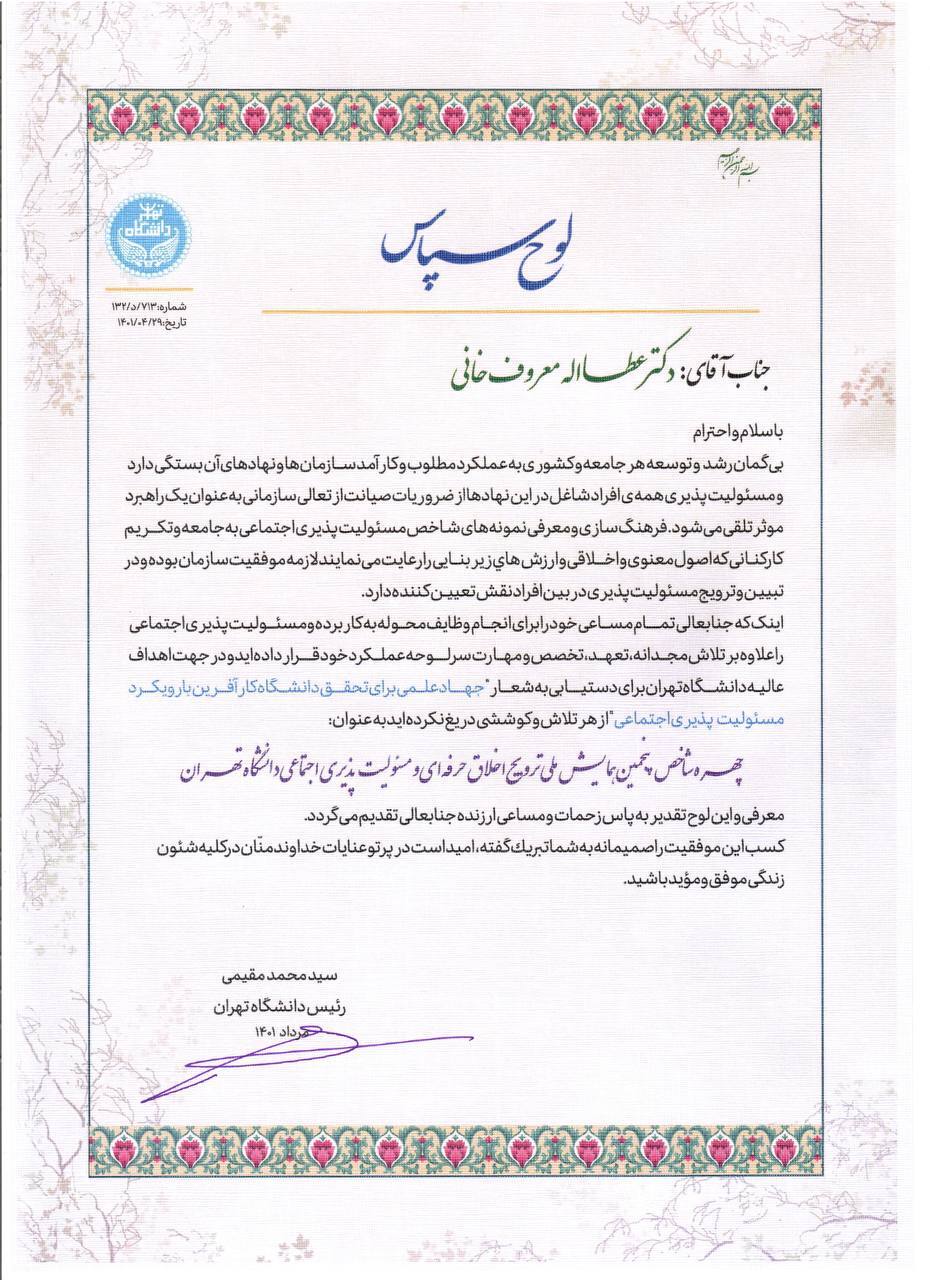 بسم الله الرحمن الرحیم
دانشگاه تهران
لوح سپاس
شماره:۷۱۳/د/۱۳۲
تاریخ:۱۴۰۱/۰۴/۲۹
جناب آقای: دکتر عطااله معروف خانی
باسلام و احترام
بی گمان رشد و توسعه هر جامعه و کشوری به عملکرد مطلوب و کارآمد سازمان ها و نهادهای آن بستگی دارد
و مسئولیت پذیری همه‌ی افراد شاغل در این نهادها از ضروریات صیانت از تعالی سازمانی به عنوان یک راهبرد
موثر تلقی می شود. فرهنگ سازی و معرفی نمونه های شاخص مسئولیت پذیری اجتماعی به جامعه و تکریم
کارکنانی که اصول معنوی و اخلاقی و ارزش هاي زیر بنایی را رعایت می نمایند لازمه موفقیت سازمان بوده و در
تبیین و ترویج مسئولیت پذیری در بین افراد نقش تعیین کننده دارد.
اینک که جنابعالی تمام مساعی خود را برای انجام وظایف محوله به کار برده و مسئولیت پذیری اجتماعی
را علاوه بر تلاش مجدانه، تعهد، تخصص و مهارت سرلوحه عملکرد خود قرار داده اید و در جهت اهداف
عالیه دانشگاه تهران برای دستیابی به شعار "جهاد علمی برای تحقق دانشگاه کارآفرین با رویکرد
مسئولیت پذیری اجتماعی" از هر تلاش و کوششی دریغ نکرده اید به عنوان:
چهره شاخص پنجمین همایش ملی ترویج اخلاق حرفه ای و مسئولیت پذیری اجتماعی دانشگاه تهران
معرفی و این لوح تقدیر به پاس زحمات و مساعی ارزنده جنابعالی تقدیم می گردد.
کسب این موفقیت را صمیمانه به شما تبریك گفته، امید است در پرتو عنایات خداوند منّان در کلیه شئون
زندگی موفق و مؤید باشید.
سید محمد مقیمی
رئیس دانشگاه تهران
مرداد ۱۴۰۱